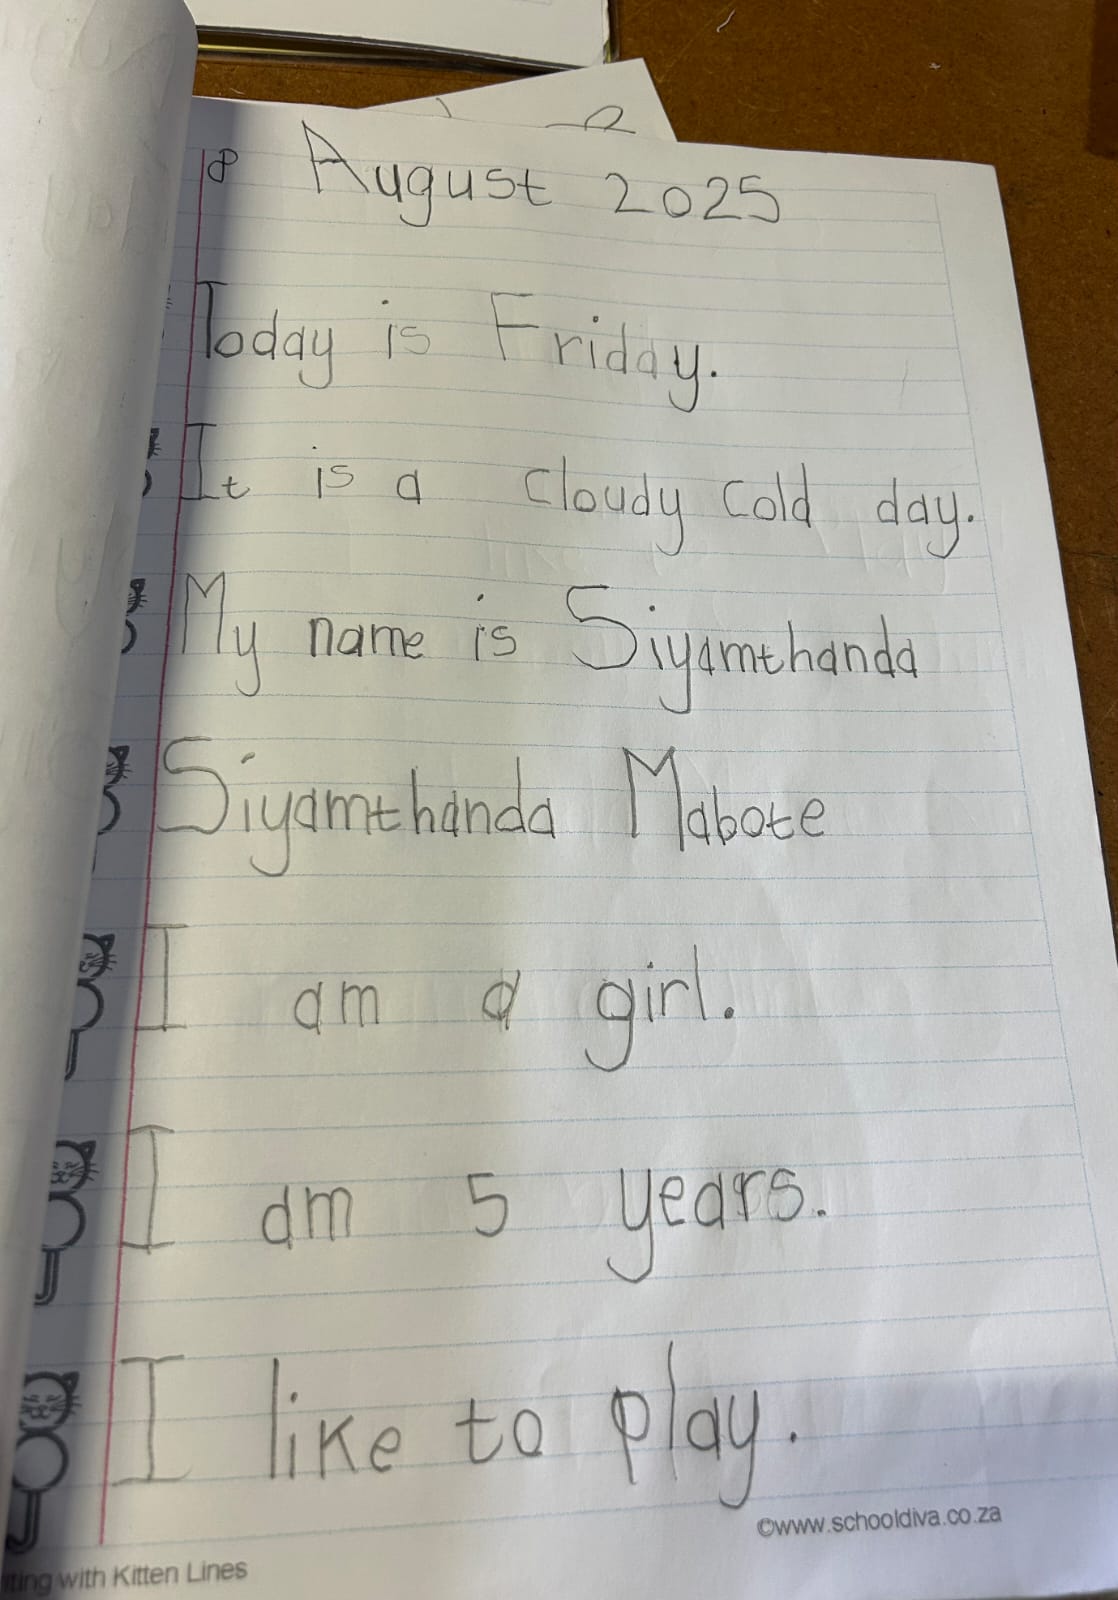 8 August 2025
Today is Friday.
It is a cloudy cold day.
My name is Siyamthanda
Siyamthanda Mabote
I am a girl.
I am 5 years.
I like to play.
©www.schooldiva.co.za
with Kitten Lines